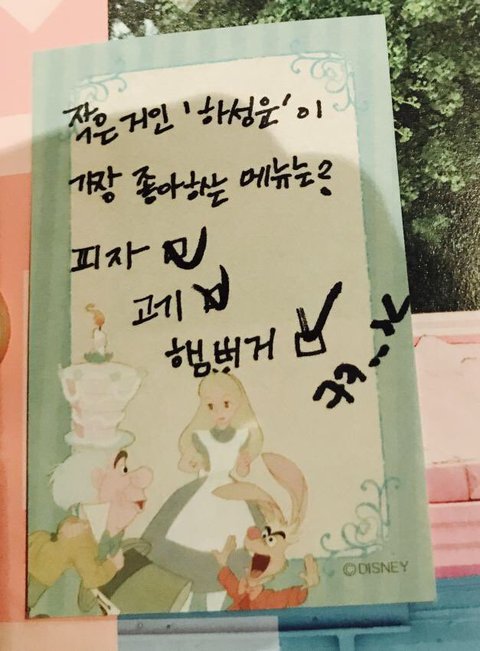 작은거인 '하성운'이
가장 좋아하는 메뉴는?
피자
고기
햄버거
©DISNEY